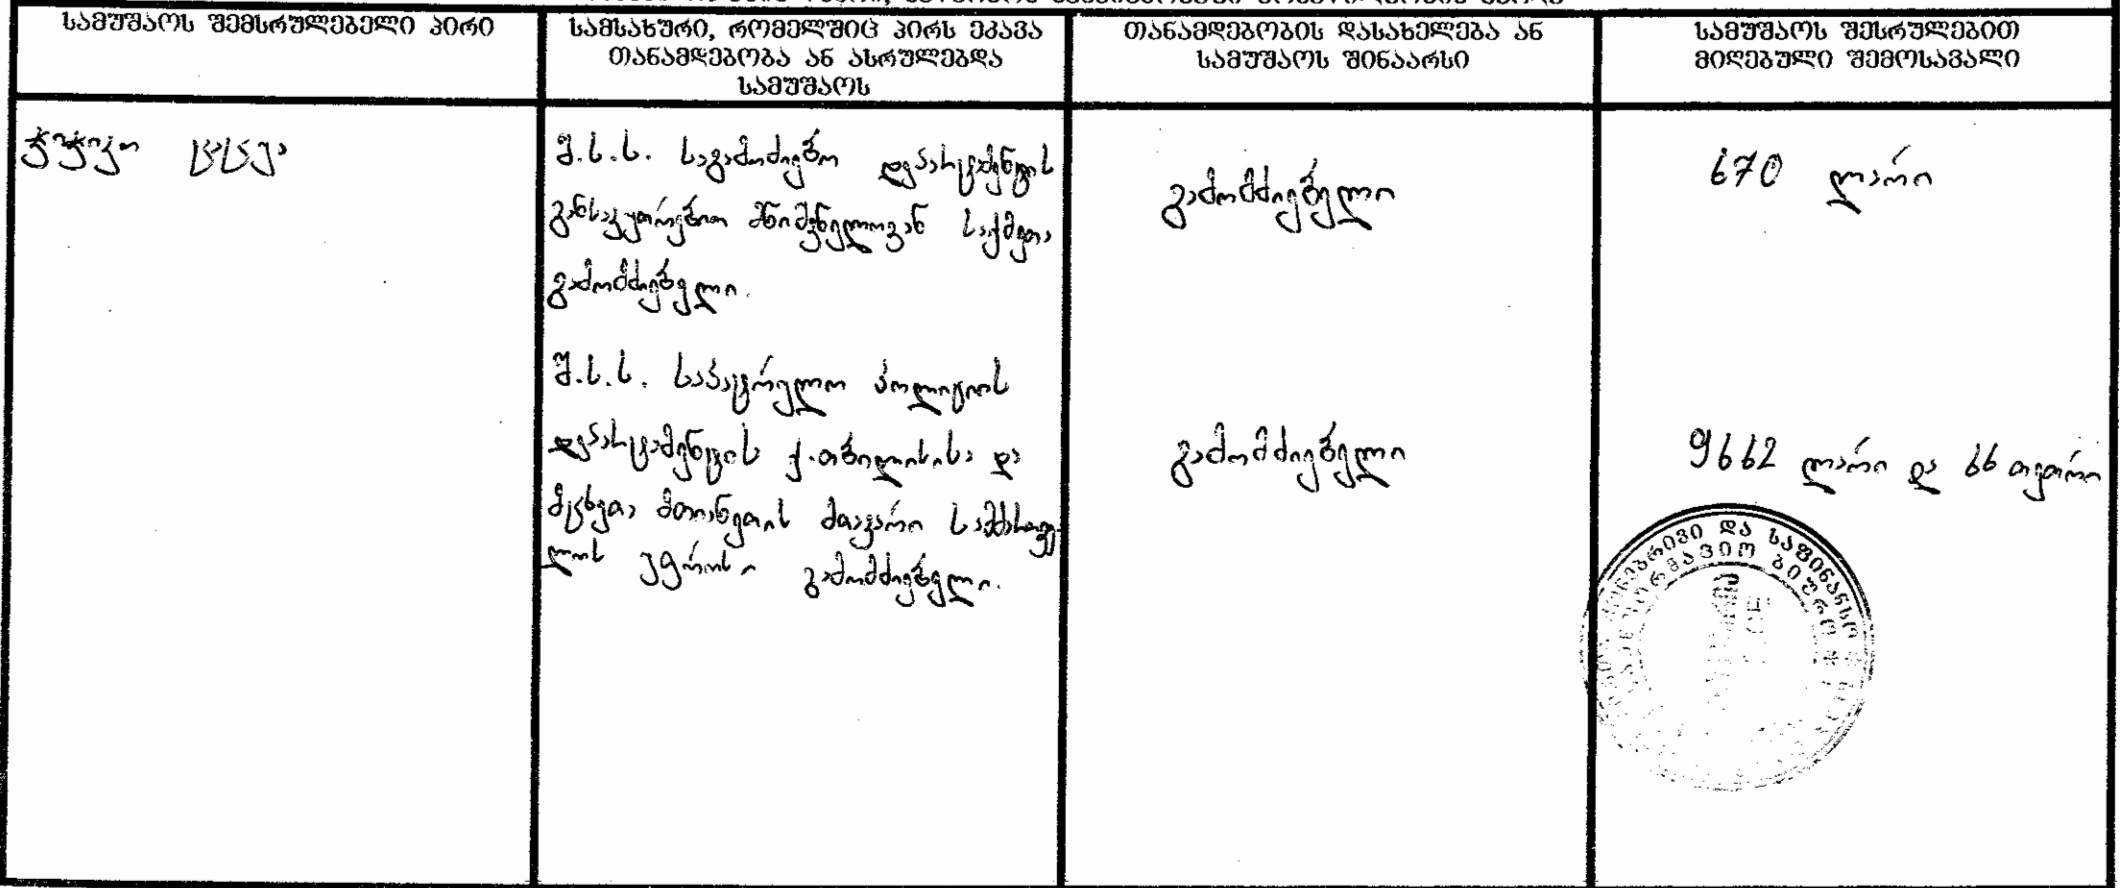 სამუშაოს შემსრულებელი პირი
სამსახური, რომელშიც პირს ეკავა
თანამდებობა ან ასრულებდა
სამუშაოს
თანამდებობის დასახელება ან
სამუშაოს შინაარსი
სამუშაოს შესრულებით
მიღებული შემოსავალი
შ.ს.ს. საგამოძიებო დეპარტამენტის
განსაკუთრებით მნიშვნელოვან საქმეთა
გამომძიებელი.
გამომძიებელი
670 ლარი
შ.ს.ს. საპატრულო პოლიციის
დეპარტამენტის ქ.თბილისისა და
მცხეთა მთიანეთის მთავარი სამმართვე
ლოს უფროსი გამომძიებელი.
გამომძიებელი
9662 ლარი და 66 თეთრი
ქონებრივი და საფინანსო
საინფორმაციო ბიურო *